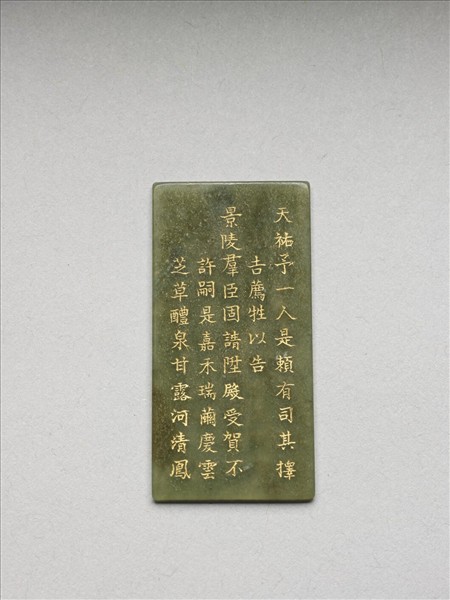 天祐予一人是賴有司其擇
吉薦牲以告
景陵羣臣固請陞殿受賀不
許嗣是嘉禾瑞繭慶雲
芝草醴泉甘露河清鳳